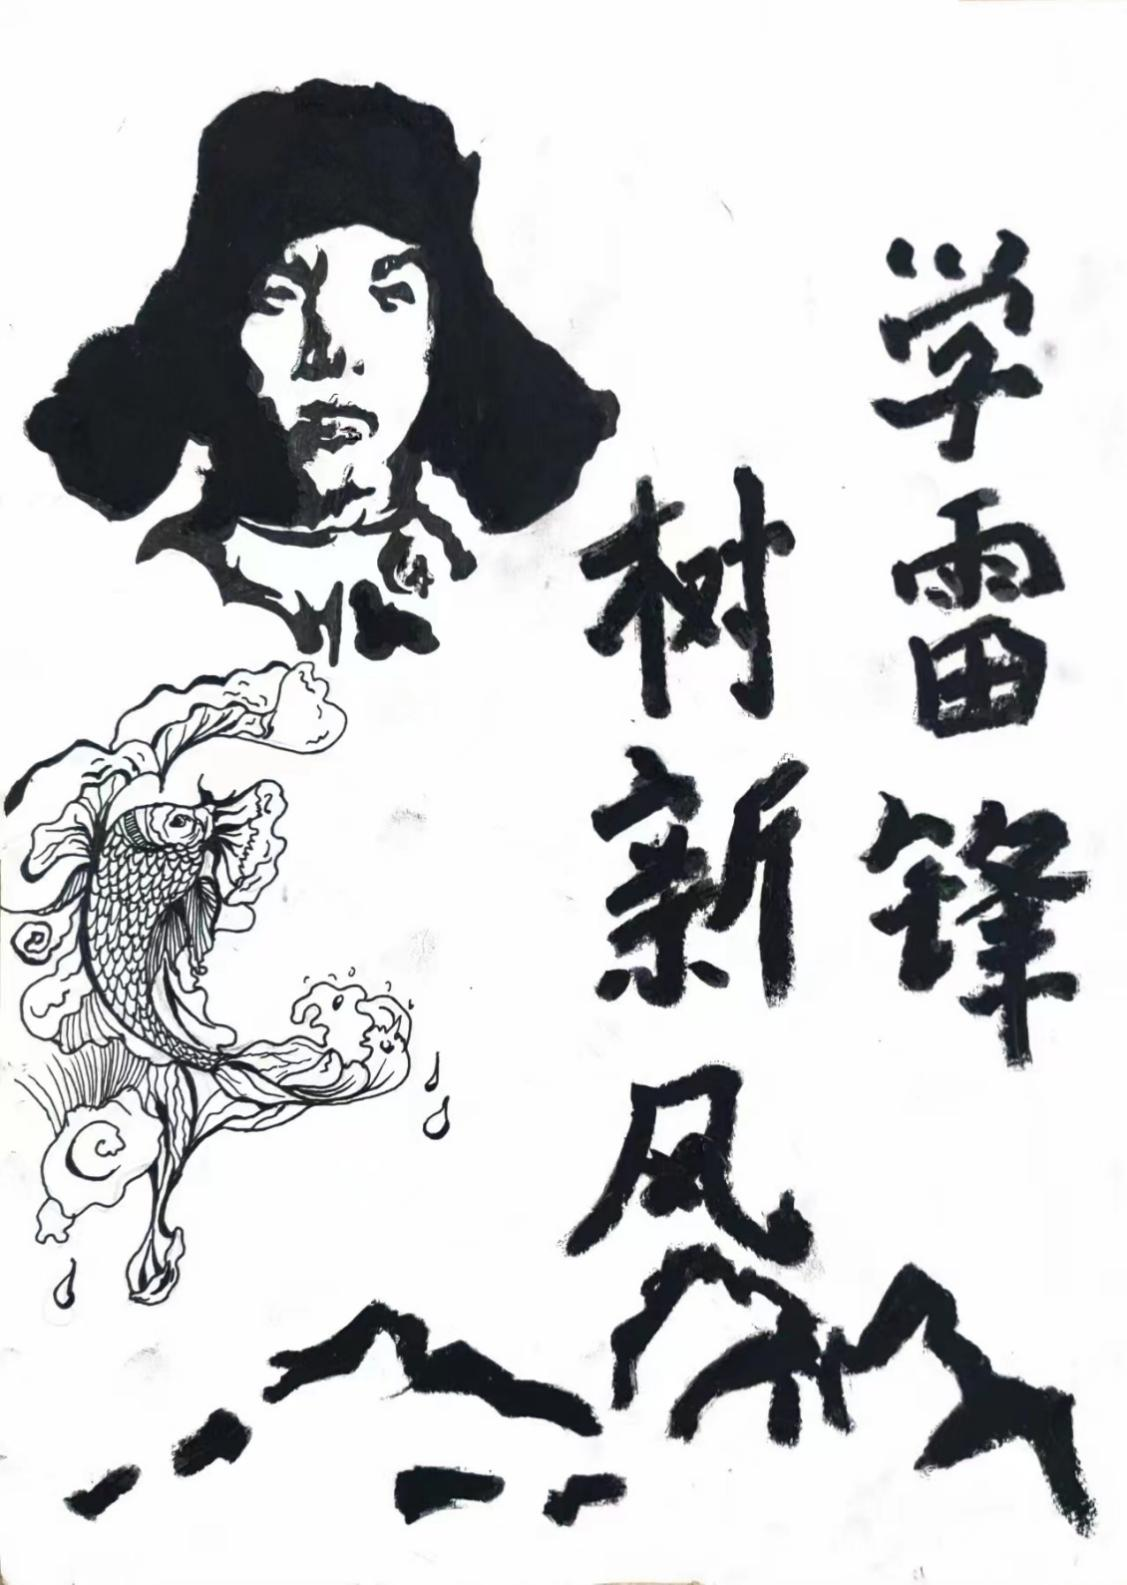 学雷锋
树新风